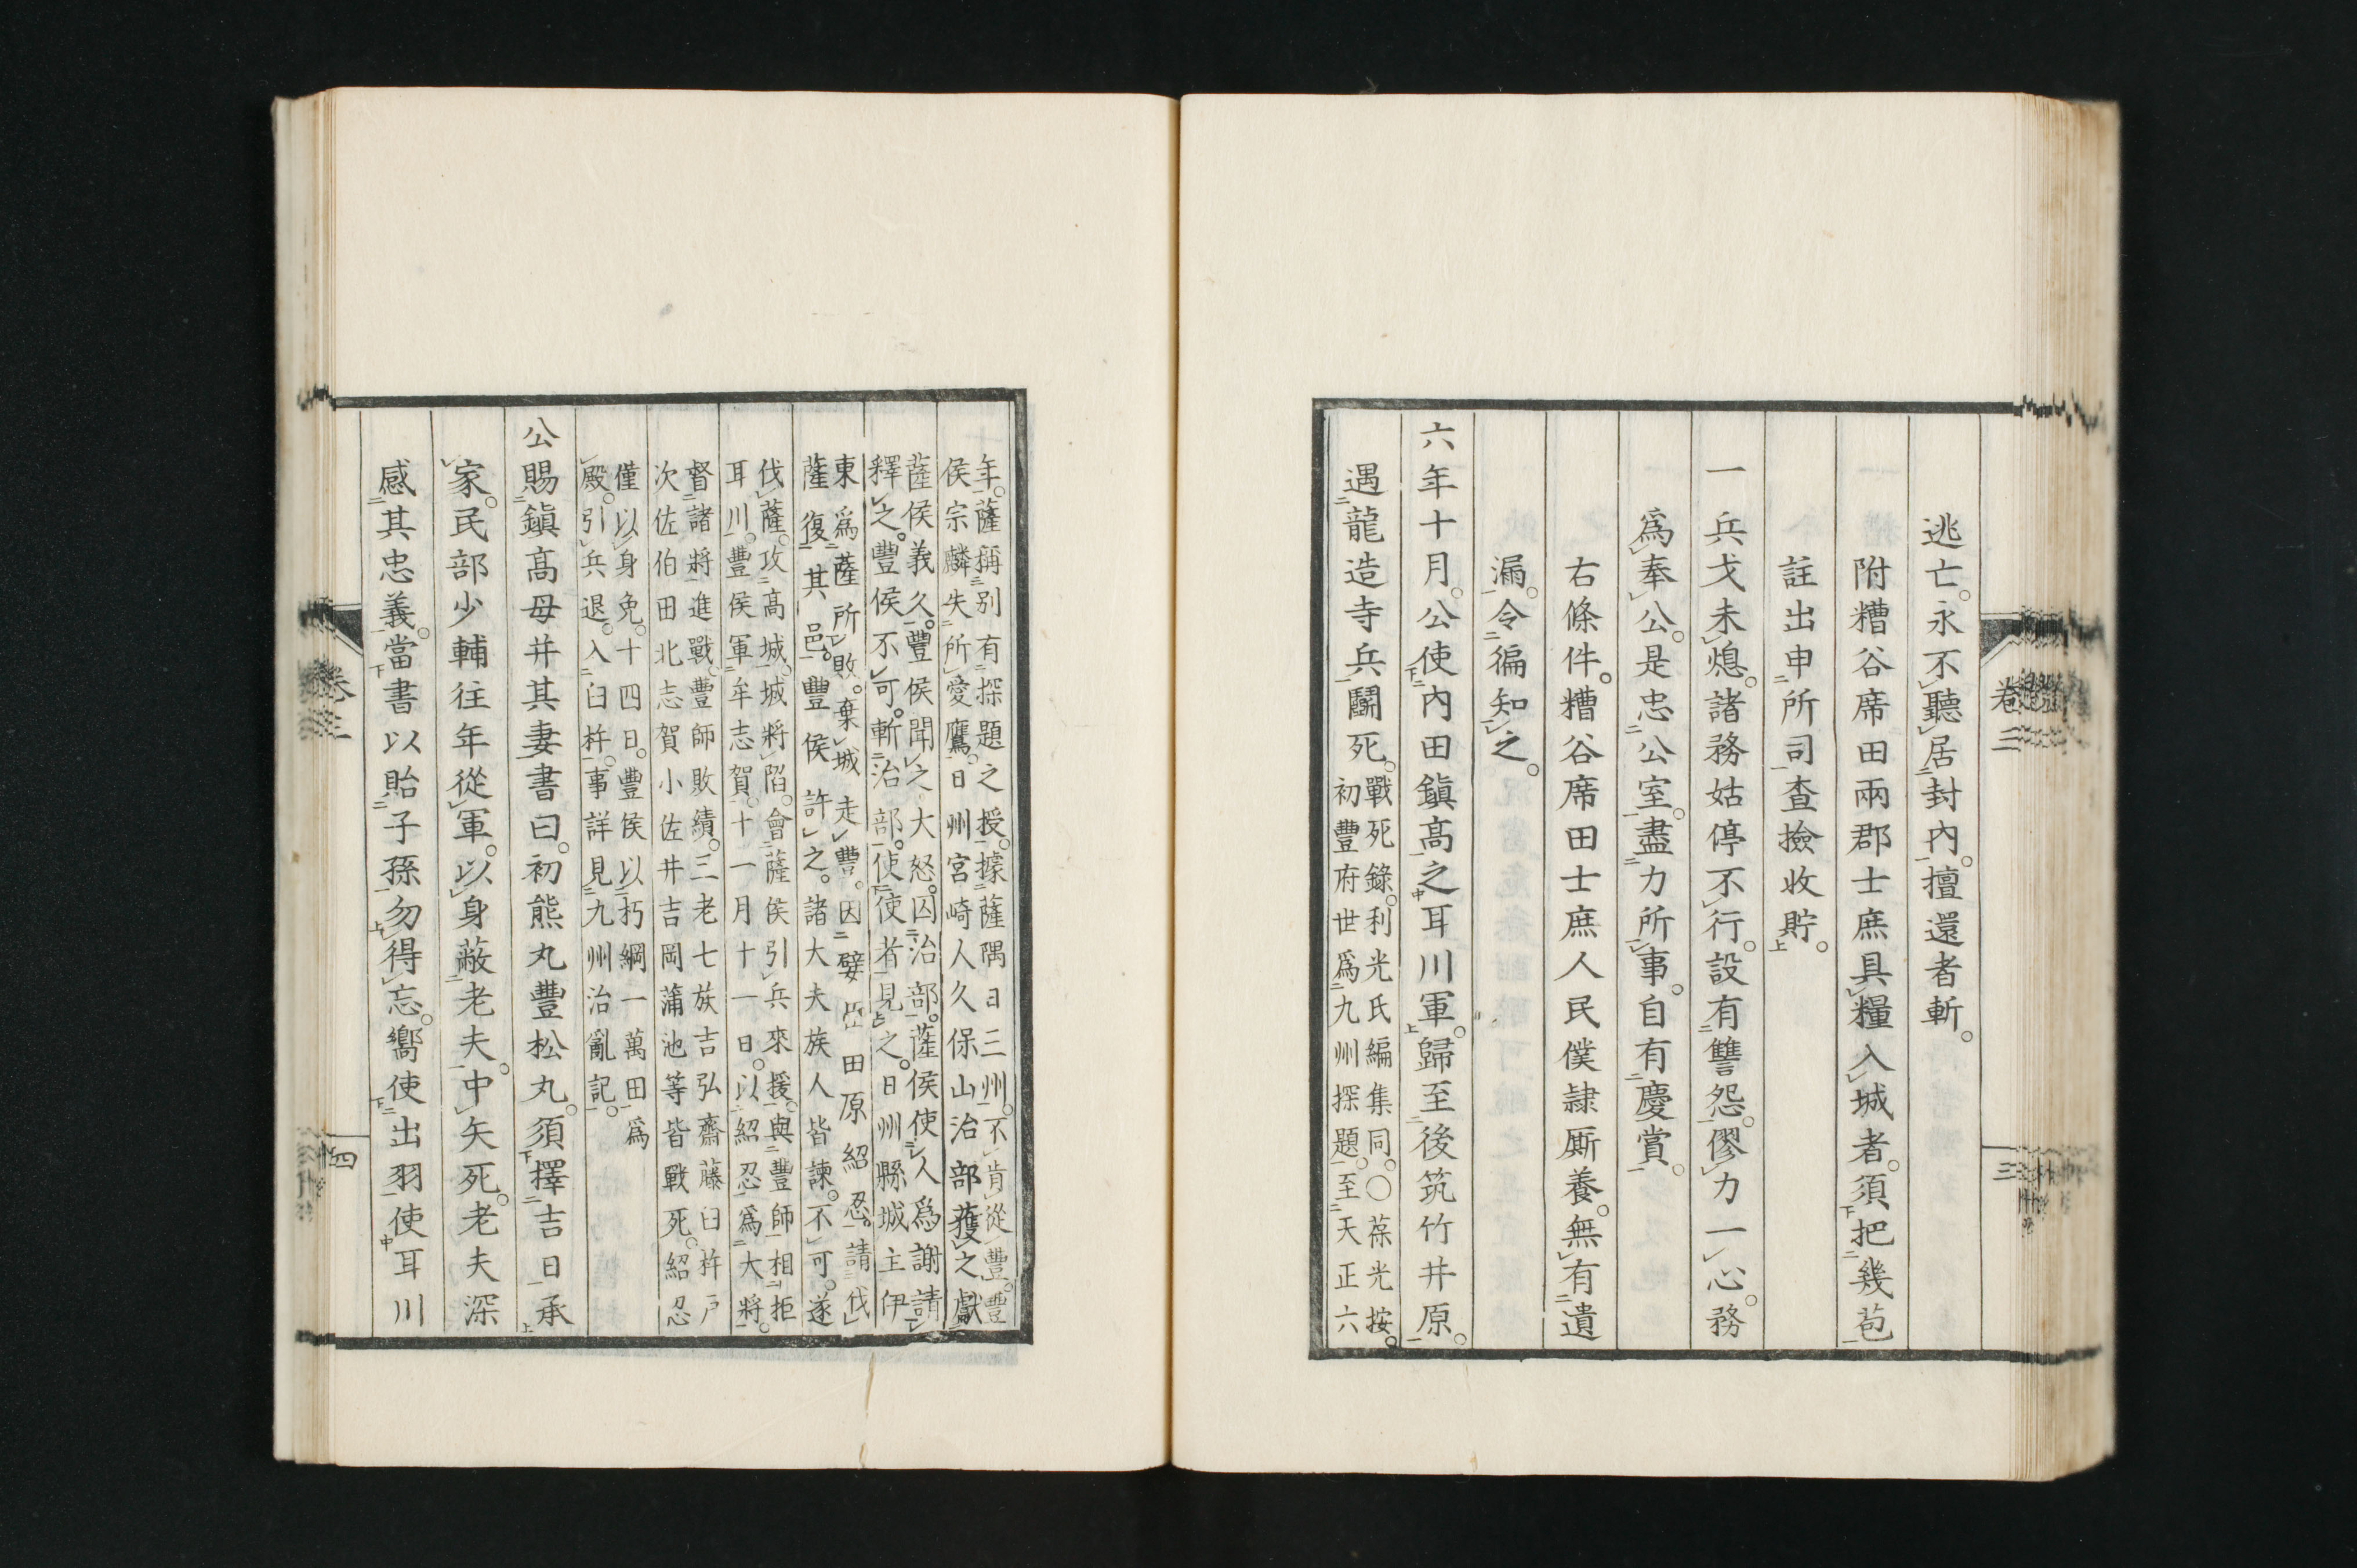 逃亡。永不聽居封内。擅還者斬。
附糟谷席田兩郡士庶具糧入城者。須把幾苞
註出申所司査撿收貯。
一兵戈未熄。諸務姑停不行。設有讐怨。僇力一心。務
爲奉公。是忠公室。盡力所事。自有慶賞。
右條件。糟谷席田士庶人民僕隷厮養。無有遺
漏。令徧知之。
六年十月。公使内田鎭高之耳川軍。歸至後筑竹井原。
遇龍造寺兵鬭死。
戰死錄。利光氏編集同。○葆光按。
初豐府世爲九州探題。至天正六
卷三
三
年。薩稱別有探題之授。據薩隅日三州。不肯從豐。豐
侯宗麟失所愛鷹。日州宮崎人久保山治部獲之獻
薩侯義久。豐侯聞之大怒。囚治部。薩侯使人爲謝請
釋之。豐侯不可。斬治部。使使者見之。日州縣城主伊
東爲薩所敗。棄城走豐。因嬖臣田原紹忍。請伐
薩復其邑。豐侯許之。諸大夫族人皆諫。不可。遂
伐薩。攻高城。城將陷。會薩侯引兵來援。與豐師相拒
耳川。豐侯軍牟志賀。十一月十一日。以紹忍爲大將。
督諸將進戰。豐師敗績。三老七族吉弘齋藤臼杵戸
次佐伯田北志賀小佐井吉岡蒲池等皆戰死。紹忍
僅以身免。十四日。豐侯以朽綱一萬田爲
殿。引兵退。入臼杵。事詳見九州治亂記。
公賜鎭高母幷其妻書曰。初熊丸豐松丸。須擇吉日承
家。民部少輔往年從軍。以身蔽老夫。中矢死。老夫深
感其忠義。當書以貽子孫勿得忘。嚮使出羽使耳川
卷三
四